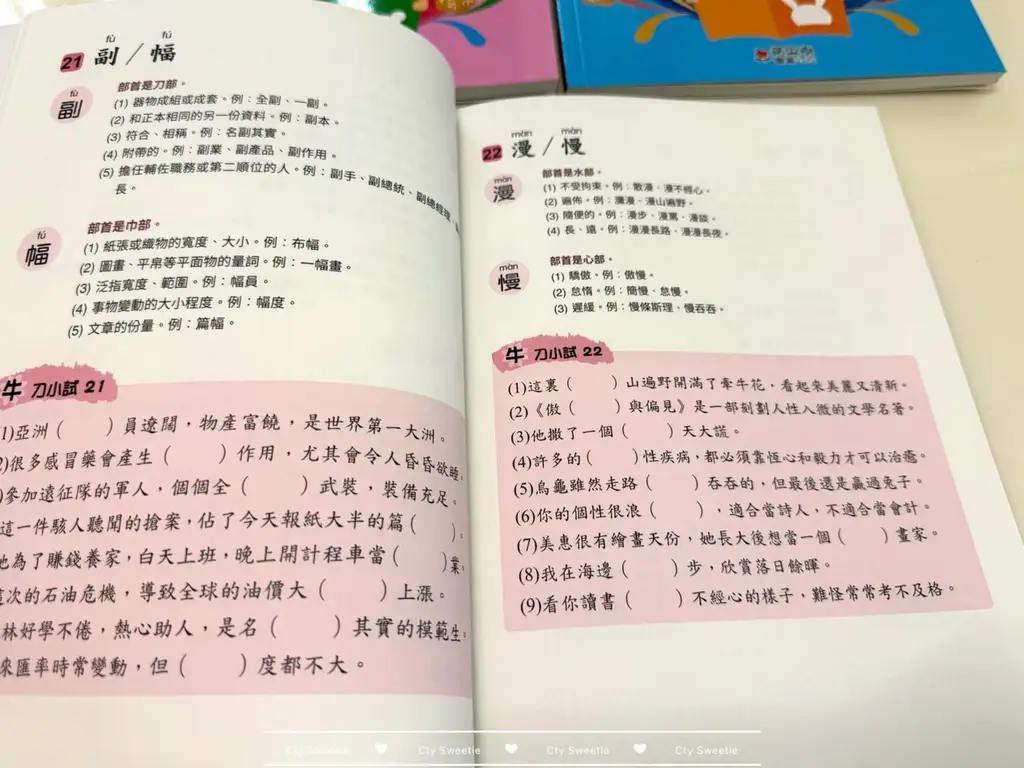 fù
fú
21 副／幅
fù
副
部首是刀部。
(1) 器物成組或成套。例：全副、一副。
(2) 和正本相同的另一份資料。例：副本。
(3) 符合、相稱。例：名副其實。
(4) 附帶的。例：副業、副產品、副作用。
(5) 擔任輔佐職務或第二順位的人。例：副手、副總統、副總經理、
長。
fú
幅
部首是巾部。
(1) 紙張或織物的寬度、大小。例：布幅。
(2) 圖畫、平帛等平面物的量詞。例：一幅畫。
(3) 泛指寬度、範圍。例：幅員。
(4) 事物變動的大小程度。例：幅度。
(5) 文章的份量。例：篇幅。
牛刀小試 21
1)亞洲（　　）員遼闊，物產富饒，是世界第一大洲。
)很多感冒藥會產生（　　）作用，尤其會令人昏昏欲睡。
)參加遠征隊的軍人，個個全（　　）武裝，裝備充足。
這一件駭人聽聞的搶案，佔了今天報紙大半的篇（　　）。
她為了賺錢養家，白天上班，晚上開計程車當（　　）業。
這次的石油危機，導致全球的油價大（　　）上漲。
林好學不倦，熱心助人，是名（　　）其實的模範生。
來匯率時常變動，但（　　）度都不大。
màn
màn
22 漫／慢
màn
漫
部首是水部。
(1) 不受拘束。例：散漫、漫不經心。
(2) 遍佈。例：瀰漫、漫山遍野。
(3) 隨便的。例：漫步、漫罵、漫談。
(4) 長、遠。例：漫漫長路、漫漫長夜。
màn
慢
部首是心部。
(1) 驕傲。例：傲慢。
(2) 怠惰。例：簡慢、怠慢。
(3) 遲緩。例：慢條斯理、慢吞吞。
牛刀小試 22
(1)這裏（　　）山遍野開滿了牽牛花，看起來美麗又清新。
(2)《傲（　　）與偏見》是一部刻劃人性入微的文學名著。
(3)他撒了一個（　　）天大謊。
(4)許多的（　　）性疾病，都必須靠恆心和毅力才可以治癒。
(5)烏龜雖然走路（　　）吞吞的，但最後還是贏過兔子。
(6)你的個性很浪（　　），適合當詩人，不適合當會計。
(7)美惠很有繪畫天份，她長大後想當一個（　　）畫家。
(8)我在海邊（　　）步，欣賞落日餘暉。
(9)看你讀書（　　）不經心的樣子，難怪常常考不及格。
Cty Sweetie ♥ Cty Sweetie ♥ Cty Sweetie ♥ Cty Sweetie